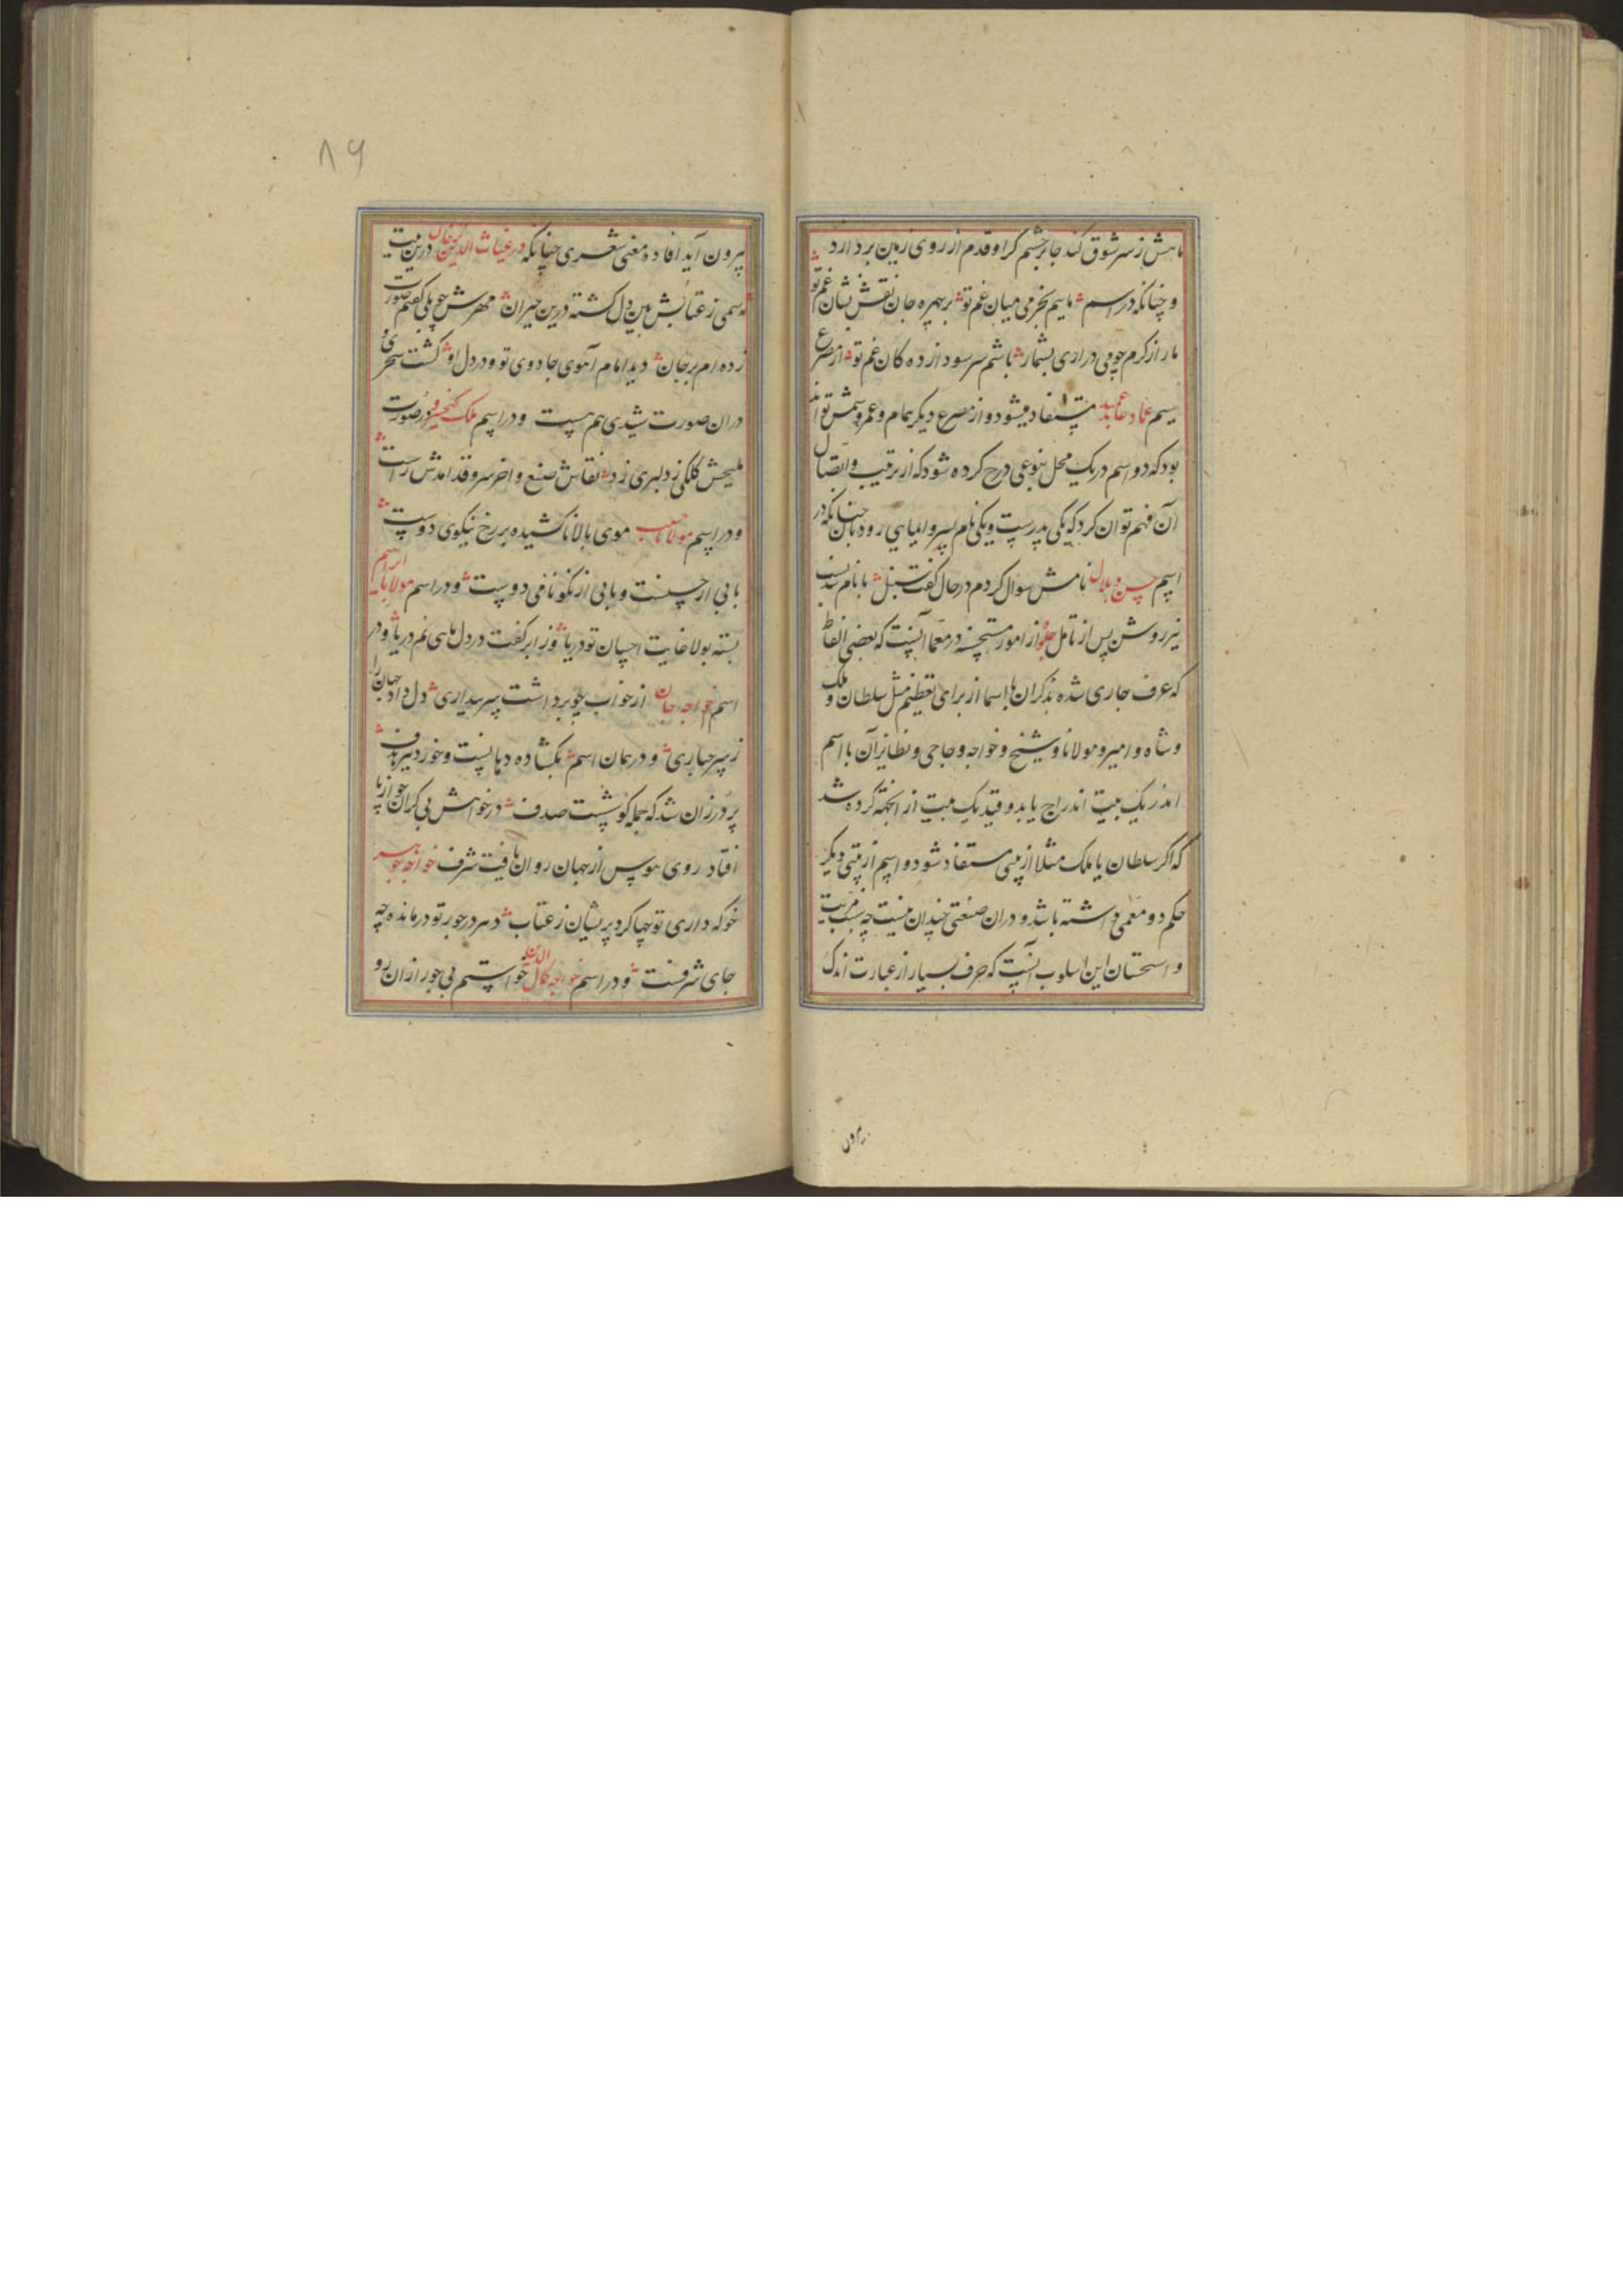 ماهش ز سر شوق کند جا بر چشم کر او قدم از روی زمین بردارد
و چنانکه در اسم ماییم بخرمی میان غم تو بر چهره جان نقش نشان غم تو
ما را از کرم چو می دراری بشمار باشم سر سود از ده کان غم تو از مصرع
سیم عماد عابد مستفاد میشود و از مصرع دیکر بمام و عمرو سمش تواند
بود که دو اسم در یک محل بنوعی درج کرده شود که از ترتیب و اتصال
آن فهم توان کرد که یکی پدرست و یکی نام پسر و ایمایی رود بآن چنانکه در
اسم حسن و بلال نامش سوال کردم در حال کفت سنبل با نام
نیز روشن پس از تامل جلو از امور مستحسنه در معما آنست که بعضی الفاظ
که عرف جاری شده بذکر ان با اسما از برای تعظیم مثل سلطان و ملک
و شاه و امیر و مولانا و شیخ و خواجه و حاجی و نظایر آن با اسم
اندر یک بیت اندراج یابد و قید یک بیت از انجهة کرده شد
که اکر سلطان یا ملک مثلا از بیتی مستفاد شود و اسم از بیتی دیکر
حکم دو معمی داشته باشد و دران صنعتی چندان نیست چه سبب مزیت
و استحسان این اسلوب آنست که حرف بسیار از عبارت اندک
بیرون
۸۹
بیرون آید افاده معنی شعری چنانکه در غیاث الدین کرخان درین بیت
رسمی ز عتابش بین دل کشته درین حیران مهرش چو بلی کفتم صورت
زده ام بر جان دید امام آهوی جادوی تو و در دل او کشت سحری و
دران صورت شیدی هم هست و در اسم ملک کیخسرو در صورت
ملیحش کلکی ز دلبری زد نقاش صنع و اخر سرو قد امدش راست
و در اسم مولانا حبیب موی بالا ناکشیده بر رخ نیکوی دوست
بابی از حسنست و بابی از نکونامی دوست و در اسم مولانا
بسته بولا غایت احسان تو دریا وز ابر کفت در دل ماهی نم دریا و در
اسم خواجه جان از خواب چو برداشت سر بیداری دل داد جهان را
ز سر جباری و در همان اسم بکشاده دهانست و خورد تیر هدف
پر در زان شد که جمله کو پشت صدف در خواهش بی کران چو از پا
افتاد روی هوس از جهان روان یافت شرف خواجه جوهر
خو که داری تو جها کرد پریشان ز عتاب دهر در جور تو درمانده چه
جای شرفست و در اسم خواجه کمال الدین خواستم بی جور ازان رو